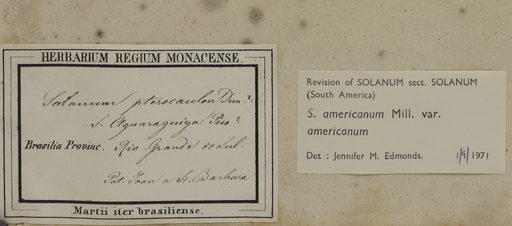 HERBARIUM REGIUM MONACENSE.
Solanum pterocaulon Dun.?
S. Aquaraquiya Piso?
Brasilia Provinc. Rio Grande do Sul.
Pat. Joan a St. Barbara
Martii iter brasiliense.
Revision of SOLANUM sect. SOLANUM
(South America)
S. americanum Mill. var.
americanum
Det : Jennifer M. Edmonds. 1/9/1971